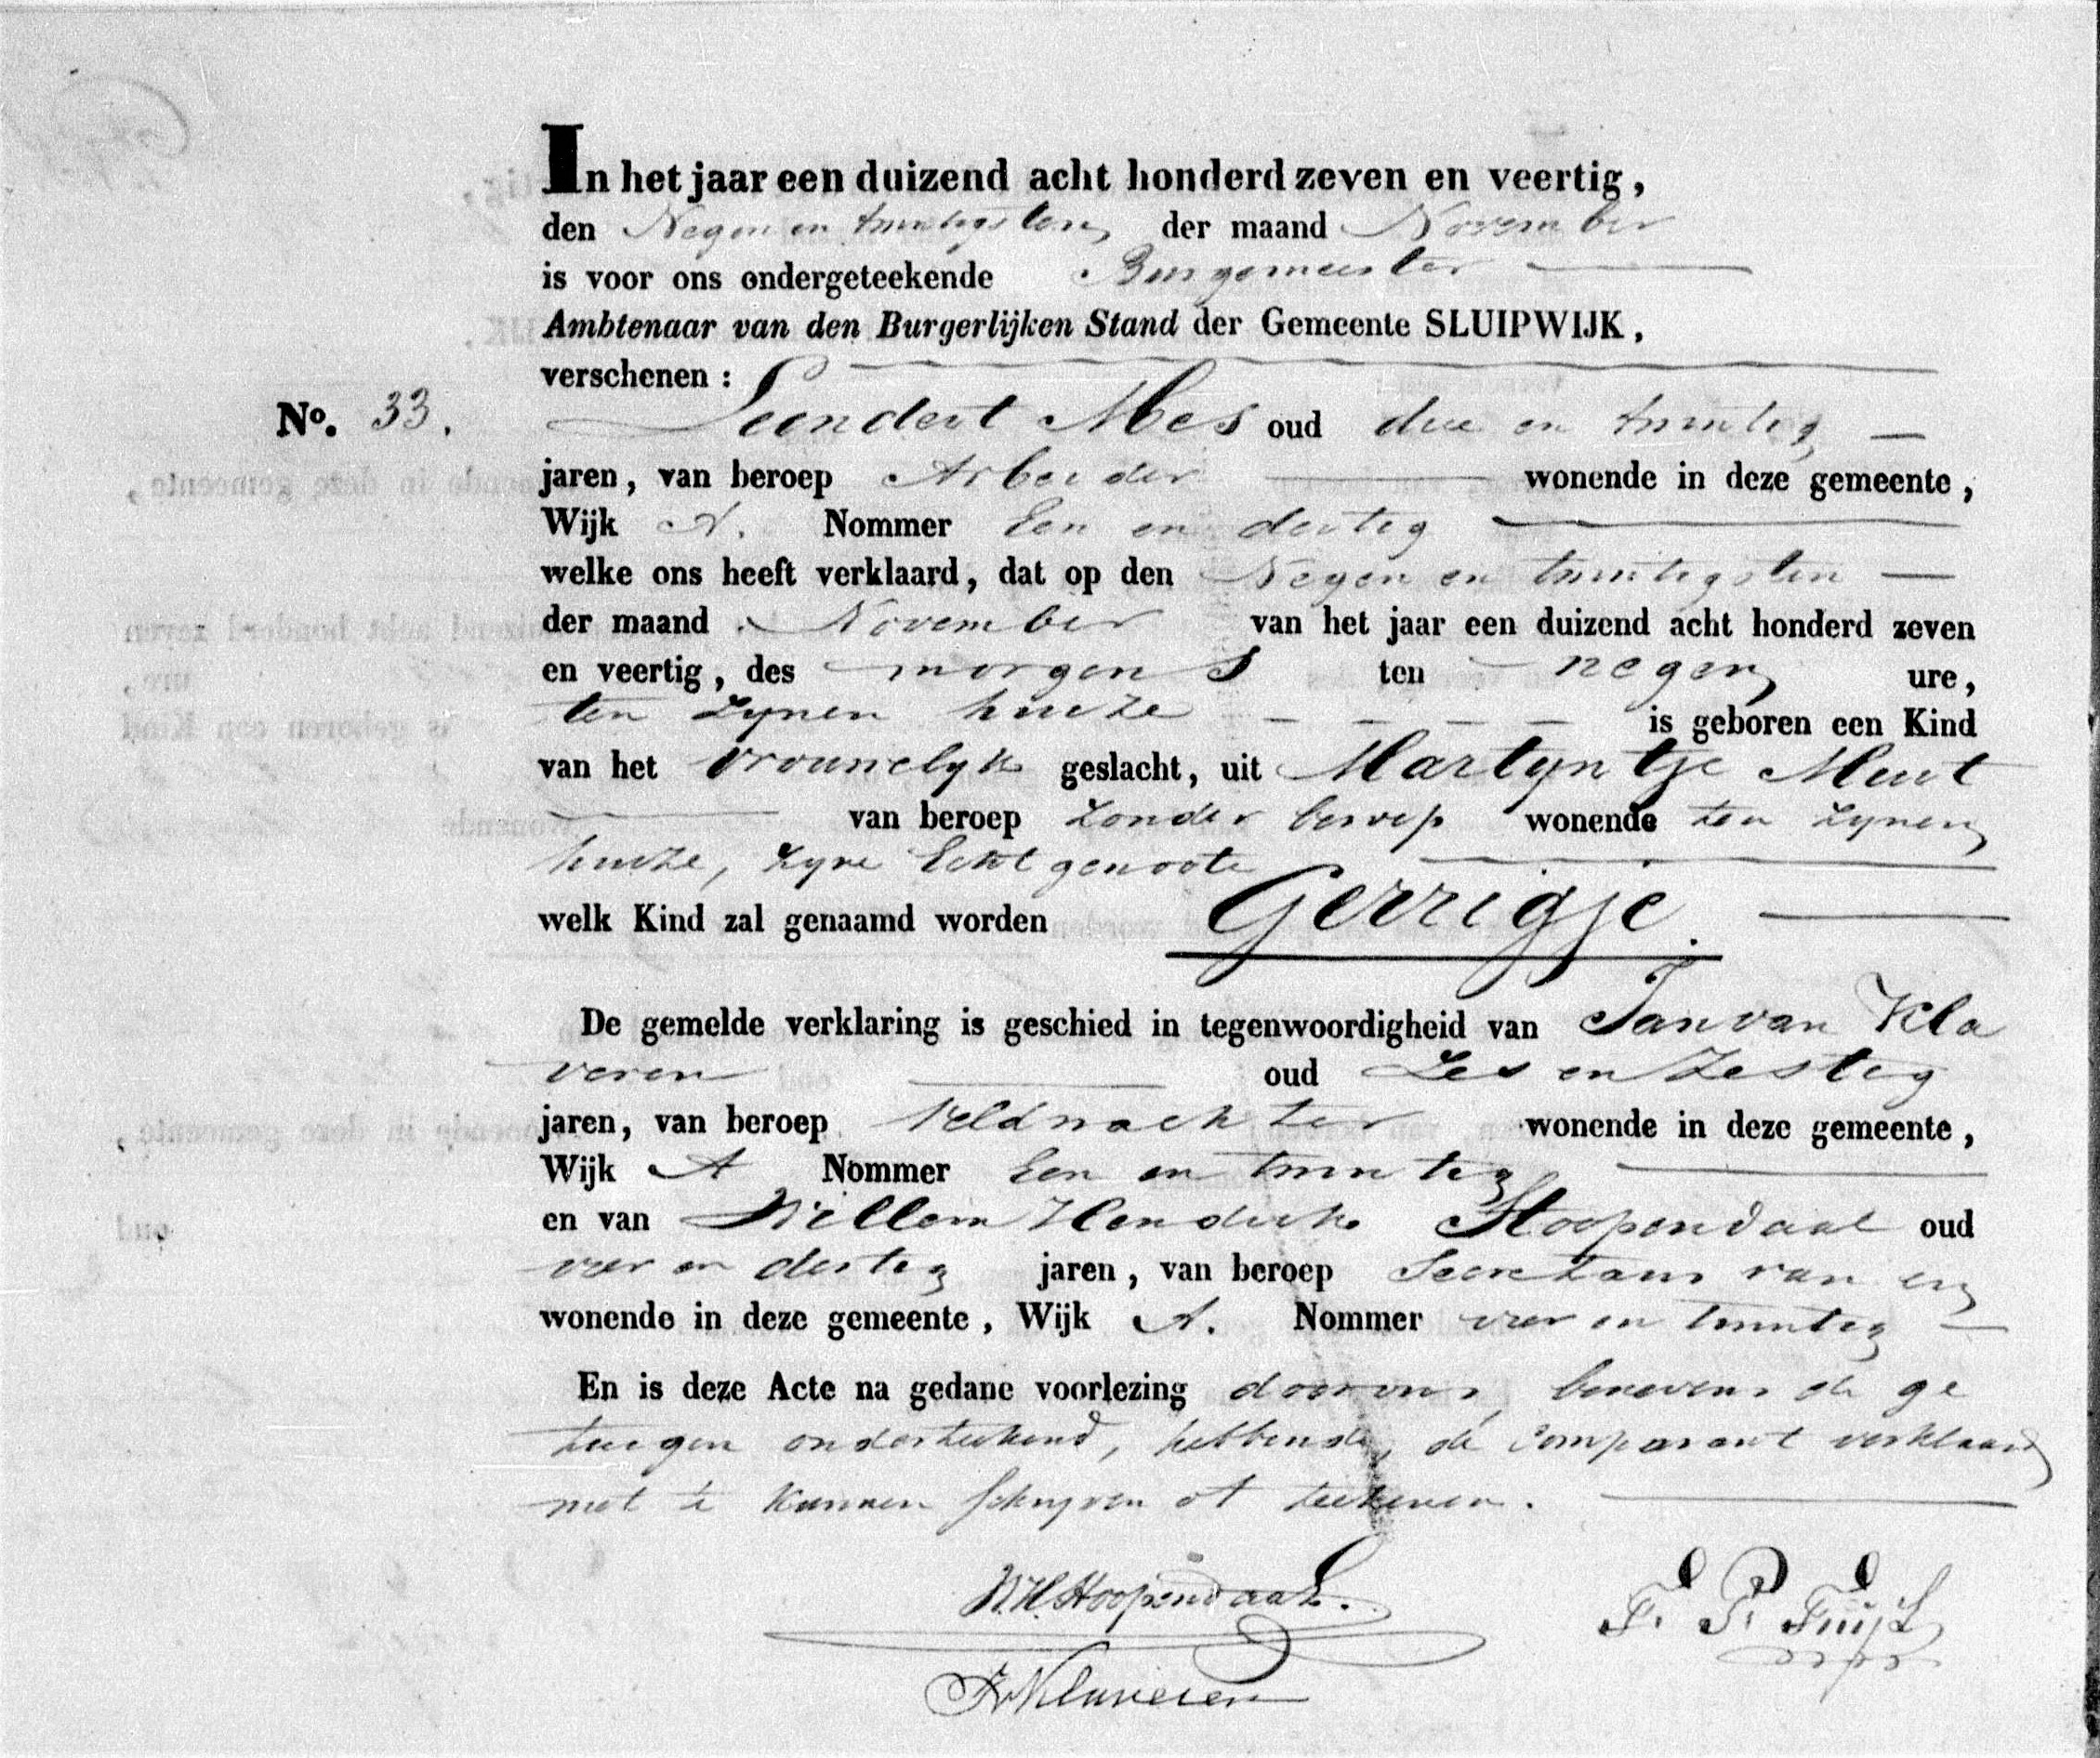 In het jaar een duizend acht honderd zeven en veertig,
den Negen en twintigsten der maand November
is voor ons ondergeteekende Burgemeester
Ambtenaar van den Burgerlijken Stand der Gemeente SLUIPWIJK,
verschenen :
No. 33.
Leendert Mes oud drie en twintig
jaren, van beroep Arbeider wonende in deze gemeente,
Wijk A. Nommer Een en dertig
welke ons heeft verklaard, dat op den Negen en twintigsten
der maand November van het jaar een duizend acht honderd zeven
en veertig, des morgens ten negen ure,
ten zynen huize is geboren een Kind
van het vrouwelyk geslacht, uit Martyntje
van beroep zonder beroep wonende ten zynen
huize, zyne Echtgenoote
welk Kind zal genaamd worden Gerrigje.
De gemelde verklaring is geschied in tegenwoordigheid van Jan van Kla
veren oud Zes en Zestig
jaren, van beroep Veldwachter wonende in deze gemeente,
Wijk A Nommer Een en twintig
en van Willem Hendrik Hoopendaal oud
vier en dertig jaren, van beroep Secretaris van en
wonende in deze gemeente, Wijk A. Nommer vier en twintig
En is deze Acte na gedane voorlezing door ons, benevens de ge
tuigen onderteekend, hebbende de Comparant verklaard
niet te kunnen schryven of teekenen.
W.H. Hoopendaal.